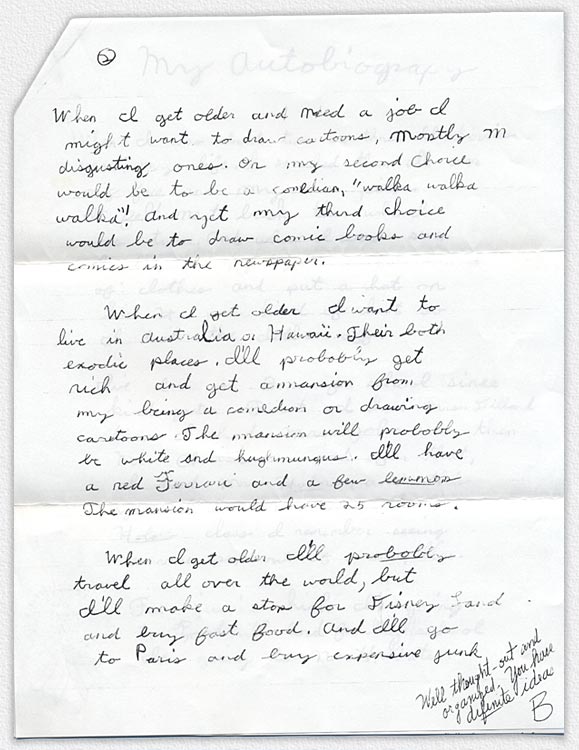 ②
My Autobiograpy
When I get older and need a job I
might want to draw catoons, mostly
disgusting ones. Or my second choice
would be to be a conedian, "walka walka
walka"! And yet my third choice
would be to draw comic books and
comics in the newspaper.
When I get older I want to
live in Australia or Hawaii. Their both
exodic places. I'll probobly get
rich and get a mansion from
my being a conedion or drawing
caretoons. The mansion will probobly
be white and hughmungus. I'll have
a red Ferrari and a few
The mansion would have 25 rooms.
When I get older I'll probobly
travel all over the world, but
I'll make a stop for Disney Land
and buy fast food. And I'll go
to Paris and buy expensive junk
Well thought-out and
organized. You have
definite ideas
B